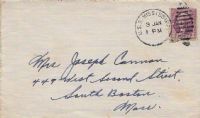 U.S.S. MISSISSIPPI
3 JAN
1 PM
Mrs Joseph Cannon
449 West Second Street.
South Boston
Mass.